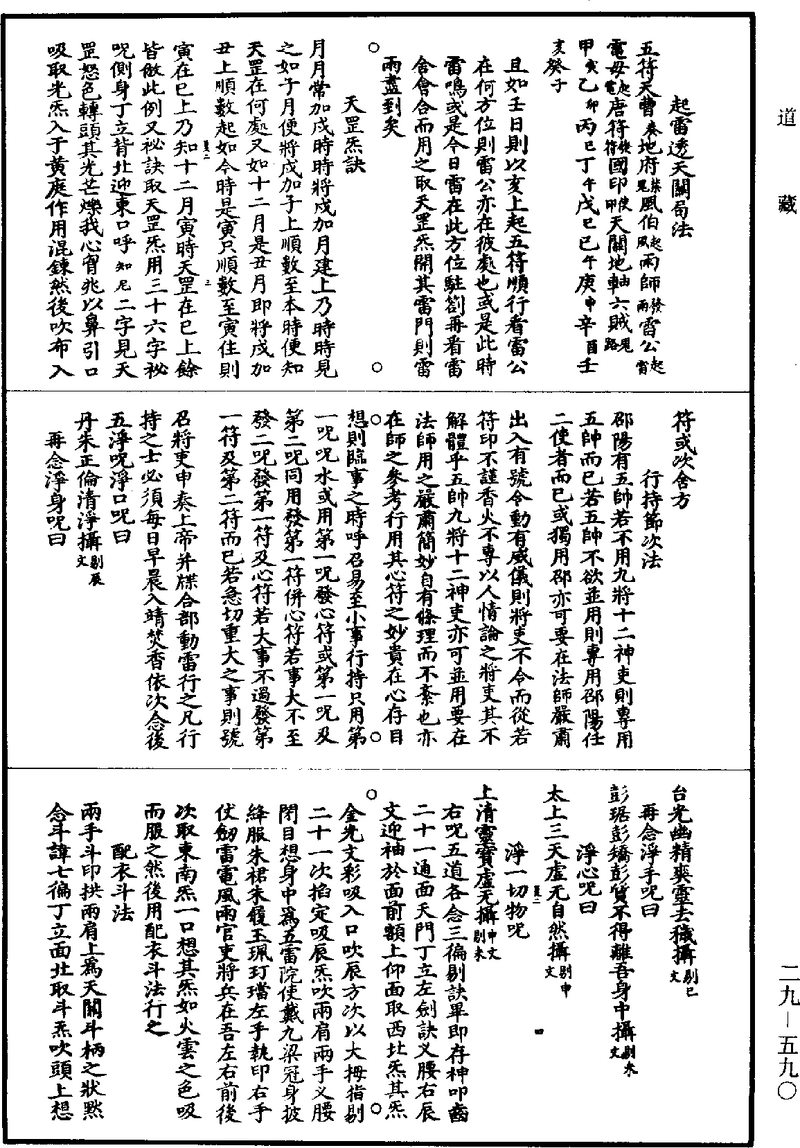 道藏
起雷透天關局法
五符天曹亥地府禁鬼風伯起風雨師發雨雷公起雷
電母起電唐符後符國印使印天關地軸六賊鬼路
甲寅乙卯丙巳丁午戊巳己午庚申辛酉壬
亥癸子
且如壬日則以亥上起五符順行看雷公
在何方位則雷公亦在彼處也或是此時
雷鳴或是今日雷在此方位駐劄再看雷
舍會合而用之取天罡炁開其雷門則雷
雨盡到矣
天罡炁訣
月月常加戌時時將戌加月建上乃時時見
之如子月便將戌加子上順數至本時便知
天罡在何處又如十二月是丑月即將戌加
丑上順數起如今時是寅只順數至寅住則
寅在巳上乃知十二月寅時天罡在巳上餘
皆倣此例又祕訣取天罡炁用三十六字祕
呪側身丁立背北迎東口呼知尼二字見天
罡怒色轉頭其光芒爍我心胷兆以鼻引口
吸取光炁入于黃庭作用混鍊然後吹布入
符或吹舍方
行持節次法
邵陽有五帥若不用九將十二神吏則專用
五帥而已若五帥不欲並用則專用邵陽任
二使者而已或獨用邵亦可要在法師嚴肅
出入有號令動有威儀則將吏不令而從若
符印不謹香火不專以人情論之將吏其不
解體乎五帥九將十二神吏亦可並用要在
法師用之嚴肅簡妙自有條理而不紊也亦
在師之參考行用其心符之妙貴在心存目
想則臨事之時呼召易至小事行持只用第
一呪呪水或用第一呪發心符或第一呪及
第二呪同用發第一符併心符若事大不至
發二呪發第一符及心符若大事不過發第
一符及第二符而已若急切重大之事則號
召將吏申奏上帝并牒合部動雷行之凡行
持之士必須每日早晨入靖焚香依次念後
五淨呪淨口呪曰
丹朱正倫清淨攝剔辰文
再念淨身呪曰
台光幽精爽靈去穢攝剔巳文
再念淨手呪曰
彭琚彭矯彭質不得離吾身中攝剔未文
淨心呪曰
太上三天虛无自然攝剔申文
淨一切物呪
上清靈寶虛无攝申文剔未
右呪五道各念三徧剔訣畢即存神叩齒
二十一通面天門丁立左劍訣义腰右辰
文迎袖於面前額上仰面取西北炁其炁
金光文彩吸入口吹辰方次以大拇指剔
二十一次掐定吸辰炁吹兩肩兩手义腰
閉目想身中爲五雷院使戴九梁冠身披
絳服朱裙朱履玉珮玎璫左手執印右手
伏劒雷電風雨官吏將兵在吾左右前後
次取東南炁一口想其炁如火雲之色吸
而服之然後用配衣斗法行之
配衣斗法
兩手斗印拱兩肩上爲天關斗柄之狀黙
念斗諱七徧丁立面北取斗炁吹頭上想
二九－五九〇